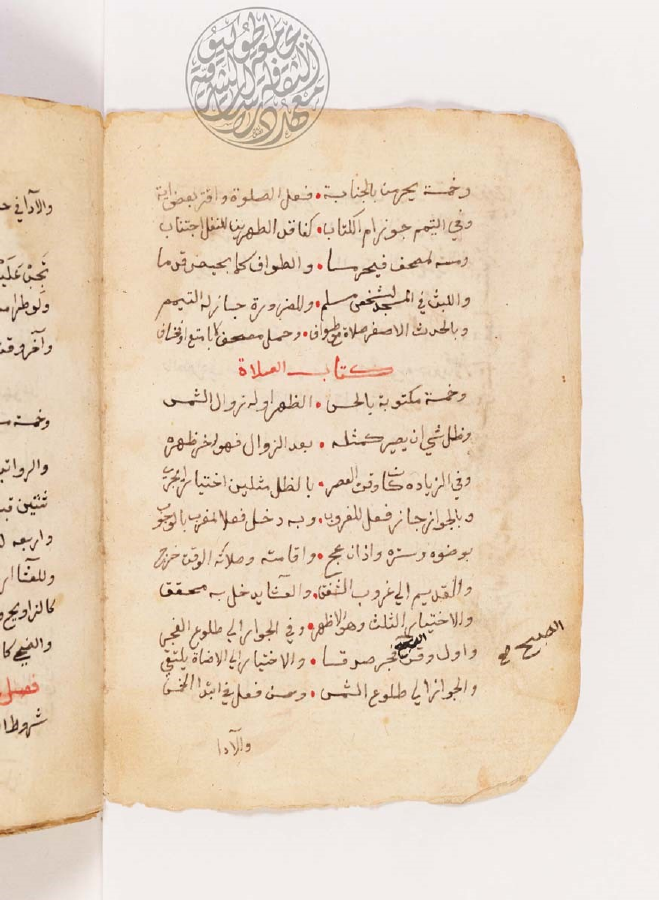 وخمسة يحرمن بالجنابة • فعل الصلوة واقتر بعض اية
وفي التيمم جوز ام الكتاب • كفاقد الطهرين للنفل اجتناب
ومسه لمصحف فيحرسا • والطواف كلما بحيض قدما
واللبث في المسجد لشخص مسلم • وللضرورة جائز له التيمم
وبالحدث الاصغر صلاة مع طواف • وحمل مصحف كبا متع
كتاب الصلاة
وخمسة مكتوبة بالحس • الظهر اوله زوال الشمس
وظل شي ان يصير كمثله • بعد الزوال فهو اخر ظهره
وفي الزياده كان وقت العصر • بالظل مثلين اختيار
وبالجواز جائز فعل للغروب • وبه دخل فعلا المغرب بالوجوب
بوضوه وستره واذان عج • واقامته وصلاته الوقت خرج
والقديم الي غروب الشفق • والعشا يدخل به محقق
والاختيار الثلث وهو الاظهر • وفي الجواز الي طلوع الفجر
واول وقت فجر صدقا • والاختيار الي الاضاة يلتقي
الصبح
الصبح
والجواز الي طلوع الشمس • وحسن فعل في ابتدا الخمس
والآدا
والآدا في
نحن
ولو
وآخر وقت
وخمسة
والرواتب
ثنتين قبل
واربعه
وللعشا
كالتراويح
والضحي
فصل
شروط